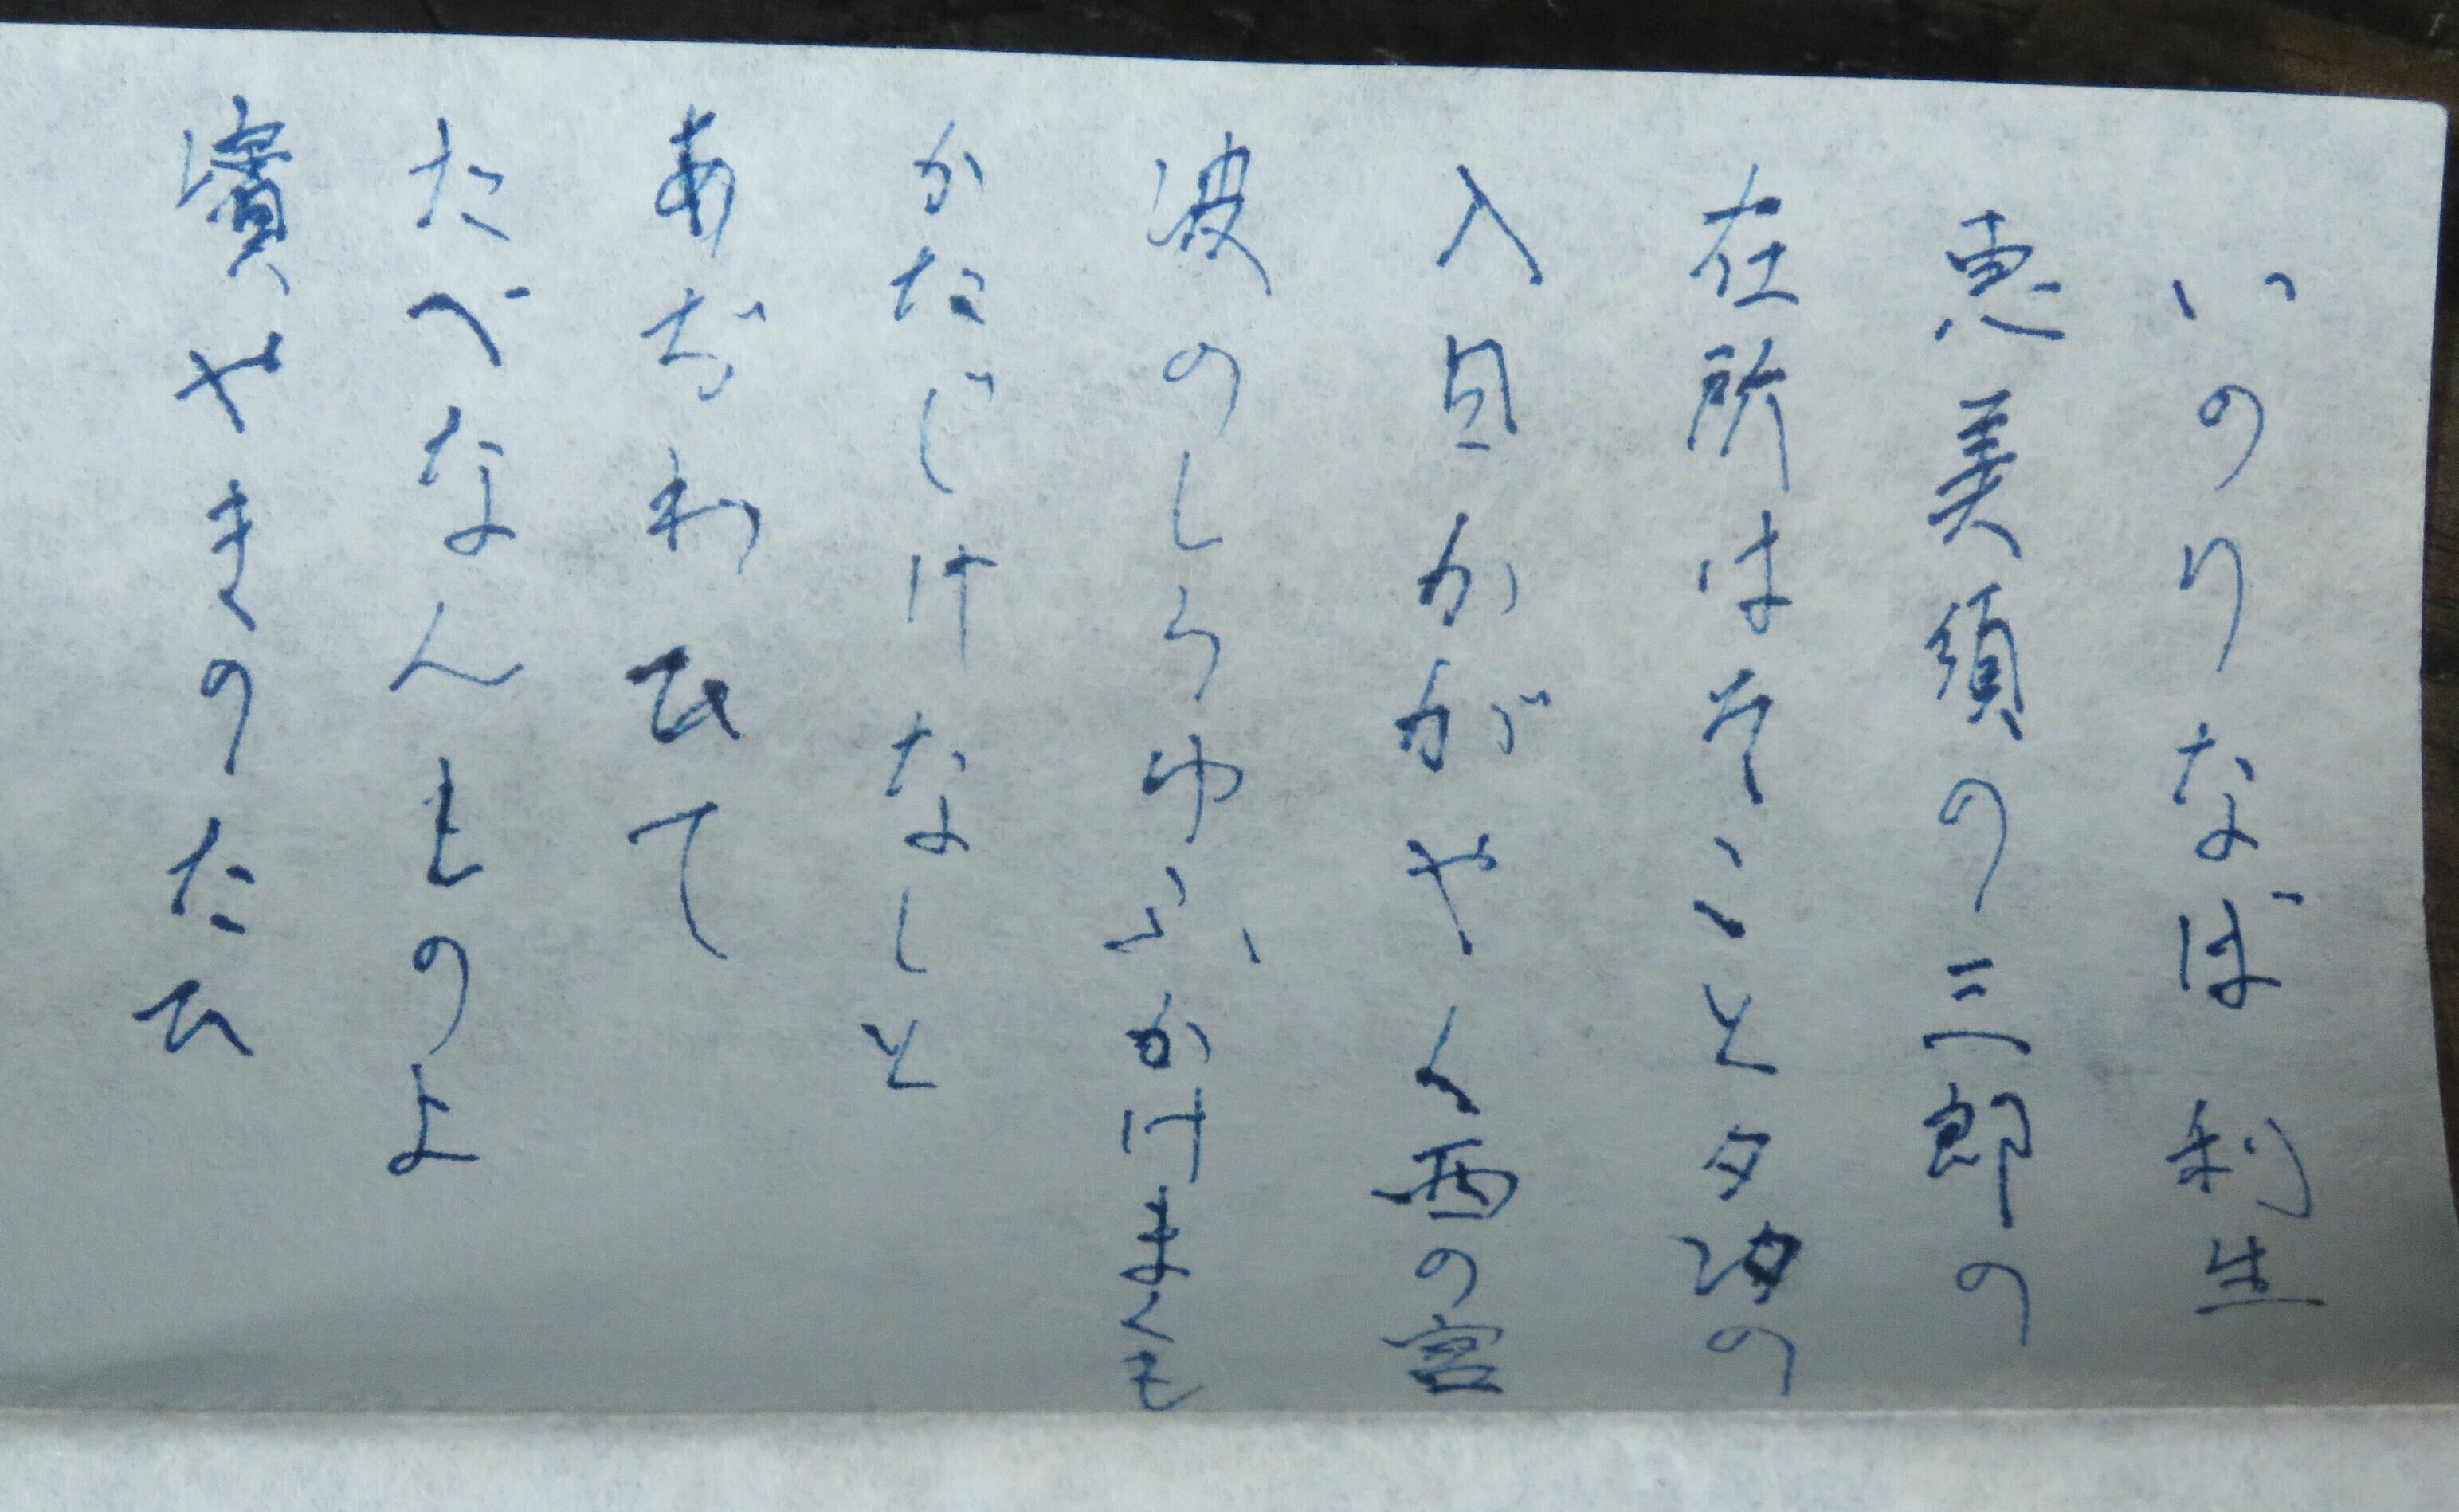 いのりなば利生
恵美須の三郎の
在所はそこと夕汐の
入日かがやく西の宮
波のしらゆふかけまくも
かたじけなしと
あぢわひて
たべなんものよ
濱やきのたひ